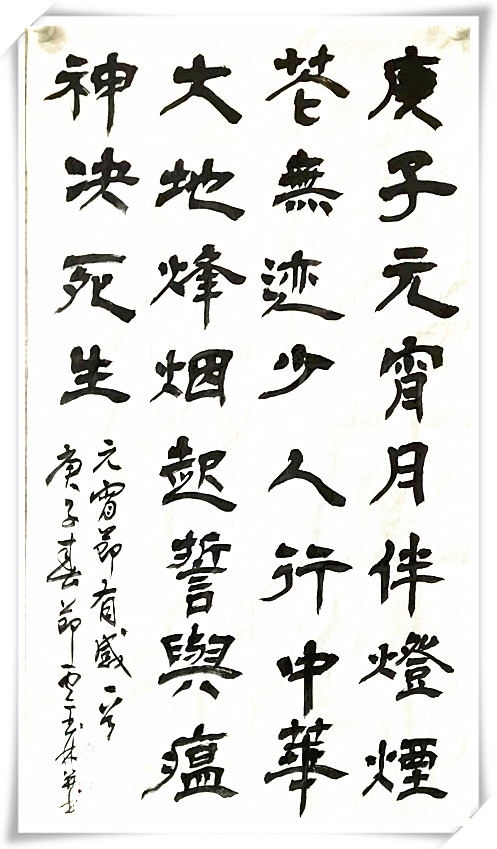 庚子元宵月伴燈煙
花無迹少人行中華
大地烽烟起誓與瘟
神决死生
元宵節有感一首
庚子春節玉林并书